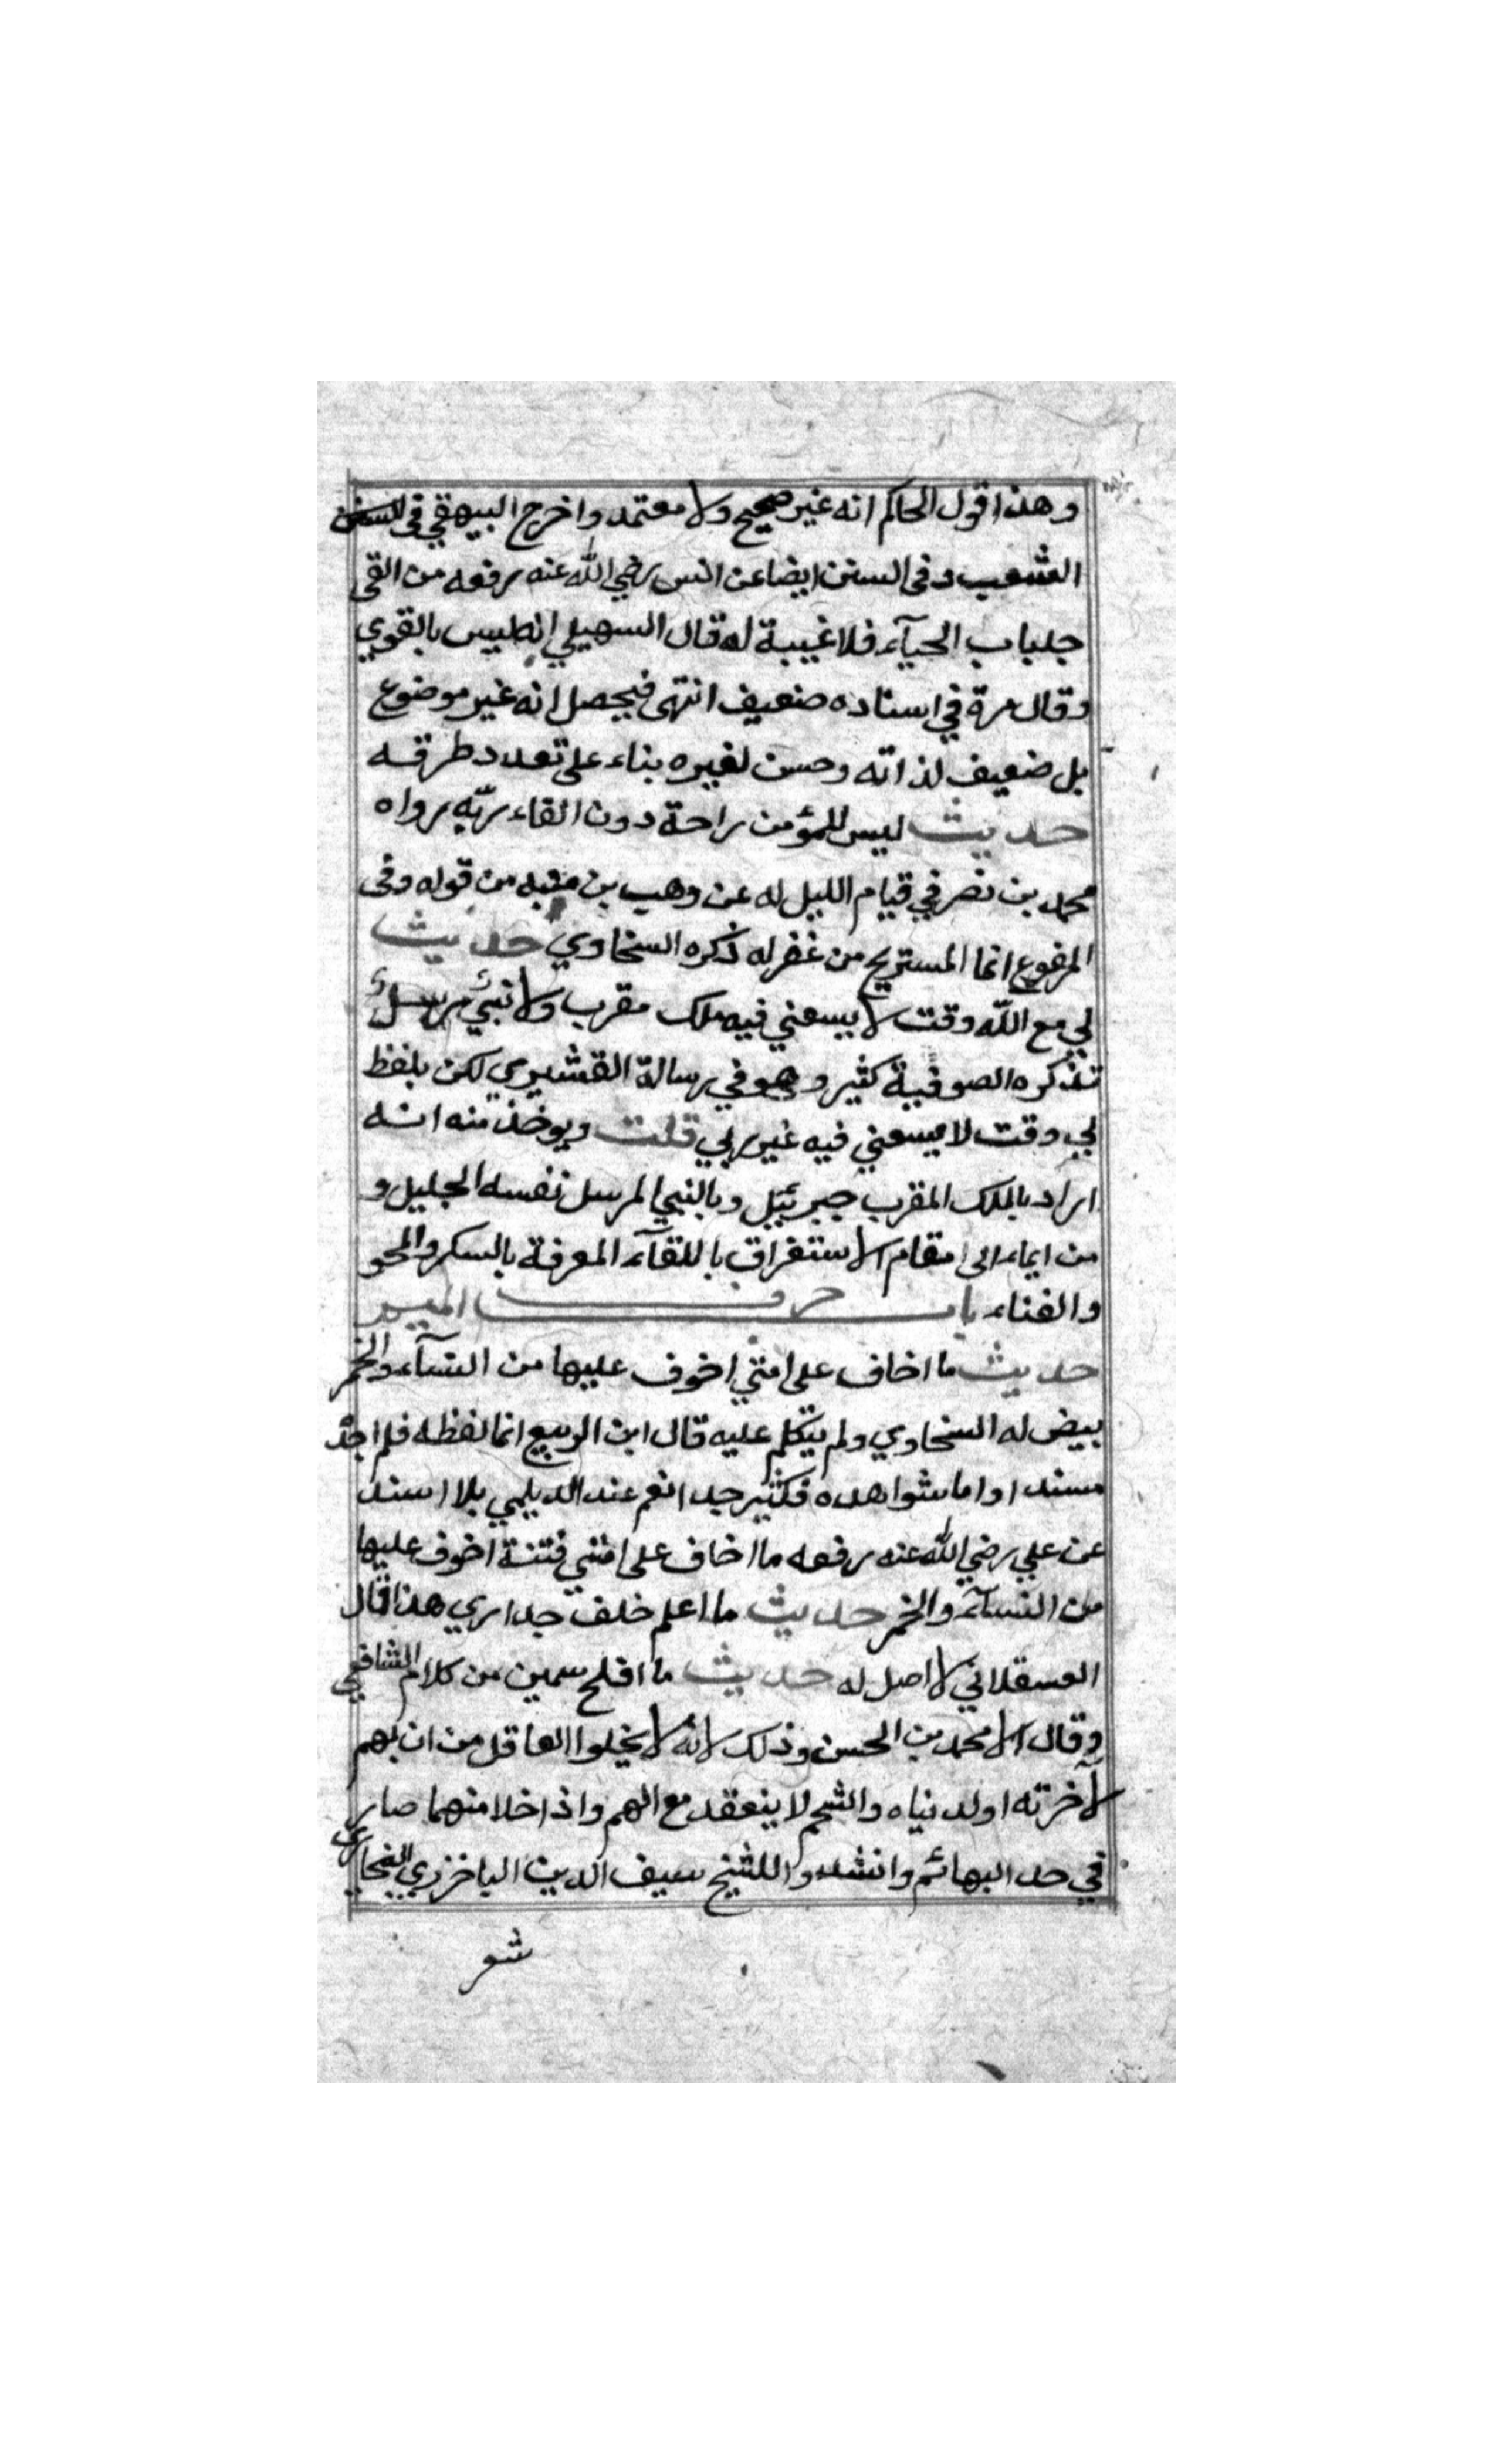 وهذا قول الحاكم انه غير صحيح ولا معتمد واخرج البيهقي في السنن
الشعب وفى السنن ايضا عن انس رضي الله عنه رفعه من القى
جلباب الحيآء فلا غيبة له قال السهيلي انه ليس بالقوي
وقال مرة في اسناده ضعيف انتهى فيحصل انه غير موضوع
بل ضعيف لذاته وحسن لغيره بناء على تعدد طرقه
حديث ليس للمؤمن راحة دون القاء ربّه رواه
محمد بن نصر في قيام الليل له عن وهب بن منبه من قوله وفى
المرفوع انما المستريح من غفر له ذكره السخاوي حديث
لي مع الله وقت لا يسعني فيه ملك مقرب ولا نبي مرسل
تذكره الصوفية كثير وهو في رسالة القشيري لكن بلفظ
لي وقت لا يسعني فيه غير ربي قلت ويوخذ منه انه
اراد بالملك المقرب جبرئيل وبالنبي المرسل نفسه الجليل و
من ايماء الى مقام الاستغراق باللقآء المعرفة بالسكر والمحو
والفناء باب حرف الميم
حديث ما اخاف على امتي اخوف عليها من النسآء والخمر
بيض له السخاوي ولم يتكلم عليه قال ابن الربيع انما لفظه فلم اجد
مسندا واما شواهده فكثير جدا نعم عند الديلمي بلا اسند
عن علي رضي الله عنه رفعه ما اخاف على امتي فتنة اخوف عليها
من النسآء والخمر حديث ما اعلم خلف جداري هذا قال
العسقلاني لا اصل له حديث ما افلح سمين من كلام الشافعي
وقال الا محمد بن الحسن وذلك لانه لا يخلوا العاقل من ان يهم
لآخرته او لدنياه والشحم لا ينعقد مع الهم واذا خلا منهما صار
في حد البهائم وانشدوا للشيخ سيف الدين الباخزري
شعر